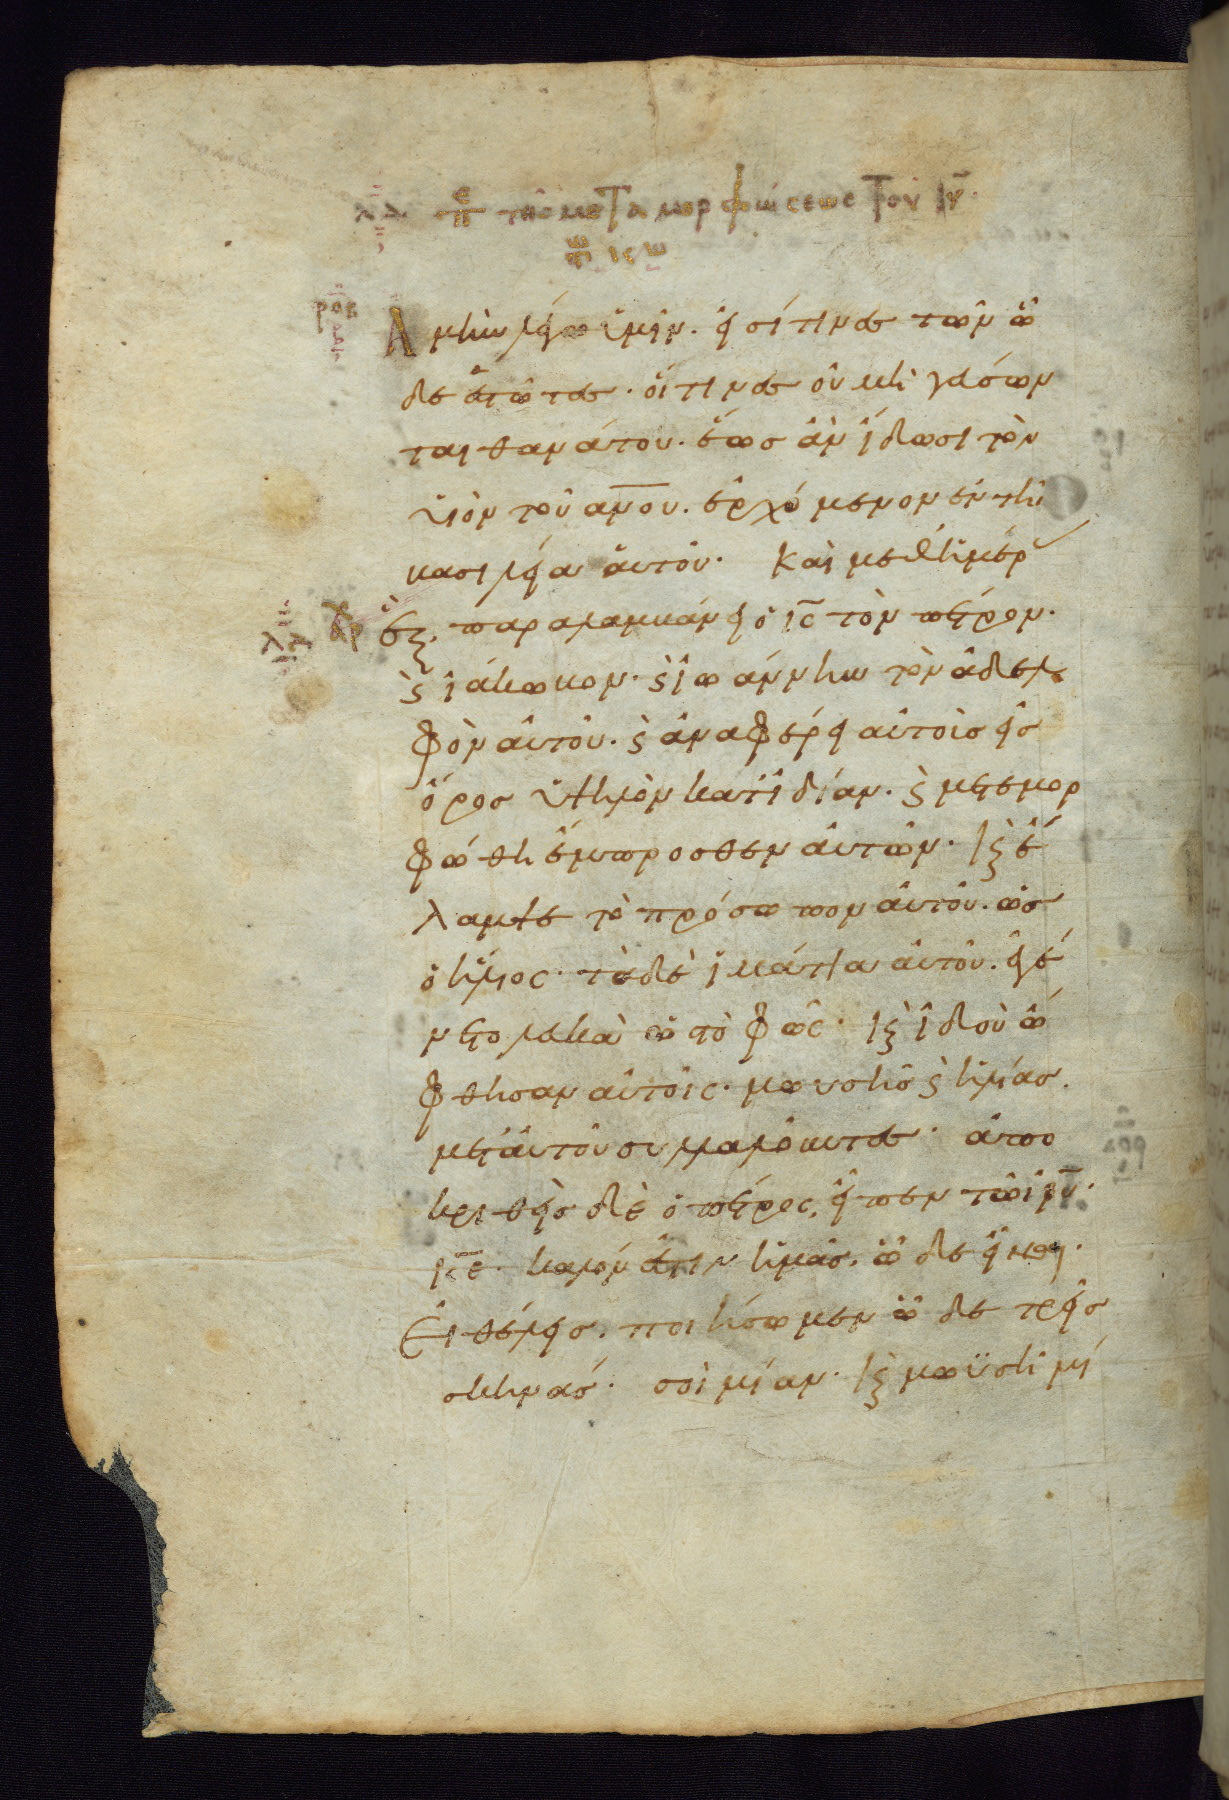 λδ περὶ τῆς μεταμορφώσεως τοῦ ιυ.
ροβ
Ἀμὴν λέγω ὑμῖν. εἰσί τινες τῶν ὧ
δε ἑστῶτες. οἵτινες οὐ μὴ γεύσων
ται θανάτου. ἕως ἂν ἴδωσι τὸν
υἱὸν τοῦ ανου. ἐρχόμενον ἐν τῇ
βασιλεία αὐτοῦ. Καὶ μεθ ἡμέρ
λδ ἀρ ἓξ. παραλαμβάνει ὁ ις τὸν πέτρον.
ϗ ἰάκωβον. ϗ ἰωάννην τὸν ἀδελ
φὸν αὐτοῦ. ϗ ἀναφέρει αὐτοὺς εἰς
ὄρος ὑψηλὸν κατ ἰδίαν. ϗ μετεμορ
φώθη ἔμπροσθεν αὐτῶν. κϗ ἔ
λαμψε τὸ πρόσωπον αὐτοῦ. ὡς
ὁ ἥλιος. τὰ δὲ ἱμάτια αὐτοῦ. ἐγέ
νετο λευκὰ ὡς τὸ φῶς. κϗ ἰδοὺ ὤ
φθησαν αὐτοῖς. μωυσῆς ϗ ἠλίας.
μετ αὐτοῦ συλλαλοῦντες. ἀπο
κριθεὶς δὲ ὁ πέτρος, εἶπεν τῶ ιυ.
κε. καλόν ἐστιν ἡμᾶς. ὧδε εἶναι.
Εἰ θέλεις. ποιήσωμεν ὧδε τρεῖς
σκηνάς. σοὶ μίαν. κϗ μωϋσῆ μί